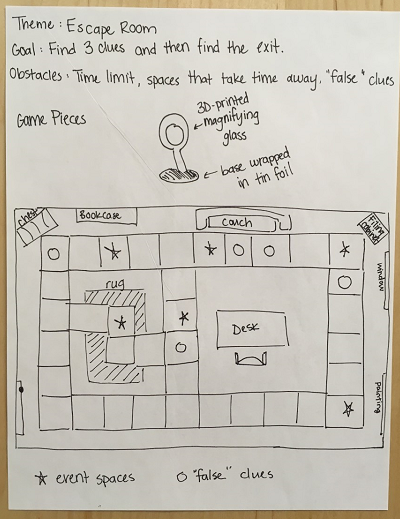 Theme: Escape Room
Goal: Find 3 clues and then find the exit.
Obstacles: Time limit, spaces that take time away, "false" clues
Game Pieces
3D-printed
magnifying
glass
base wrapped
in tin foil
chest
Bookcase
couch
Filing
cabinet
window
rug
Desk
painting
event spaces
"false" clues